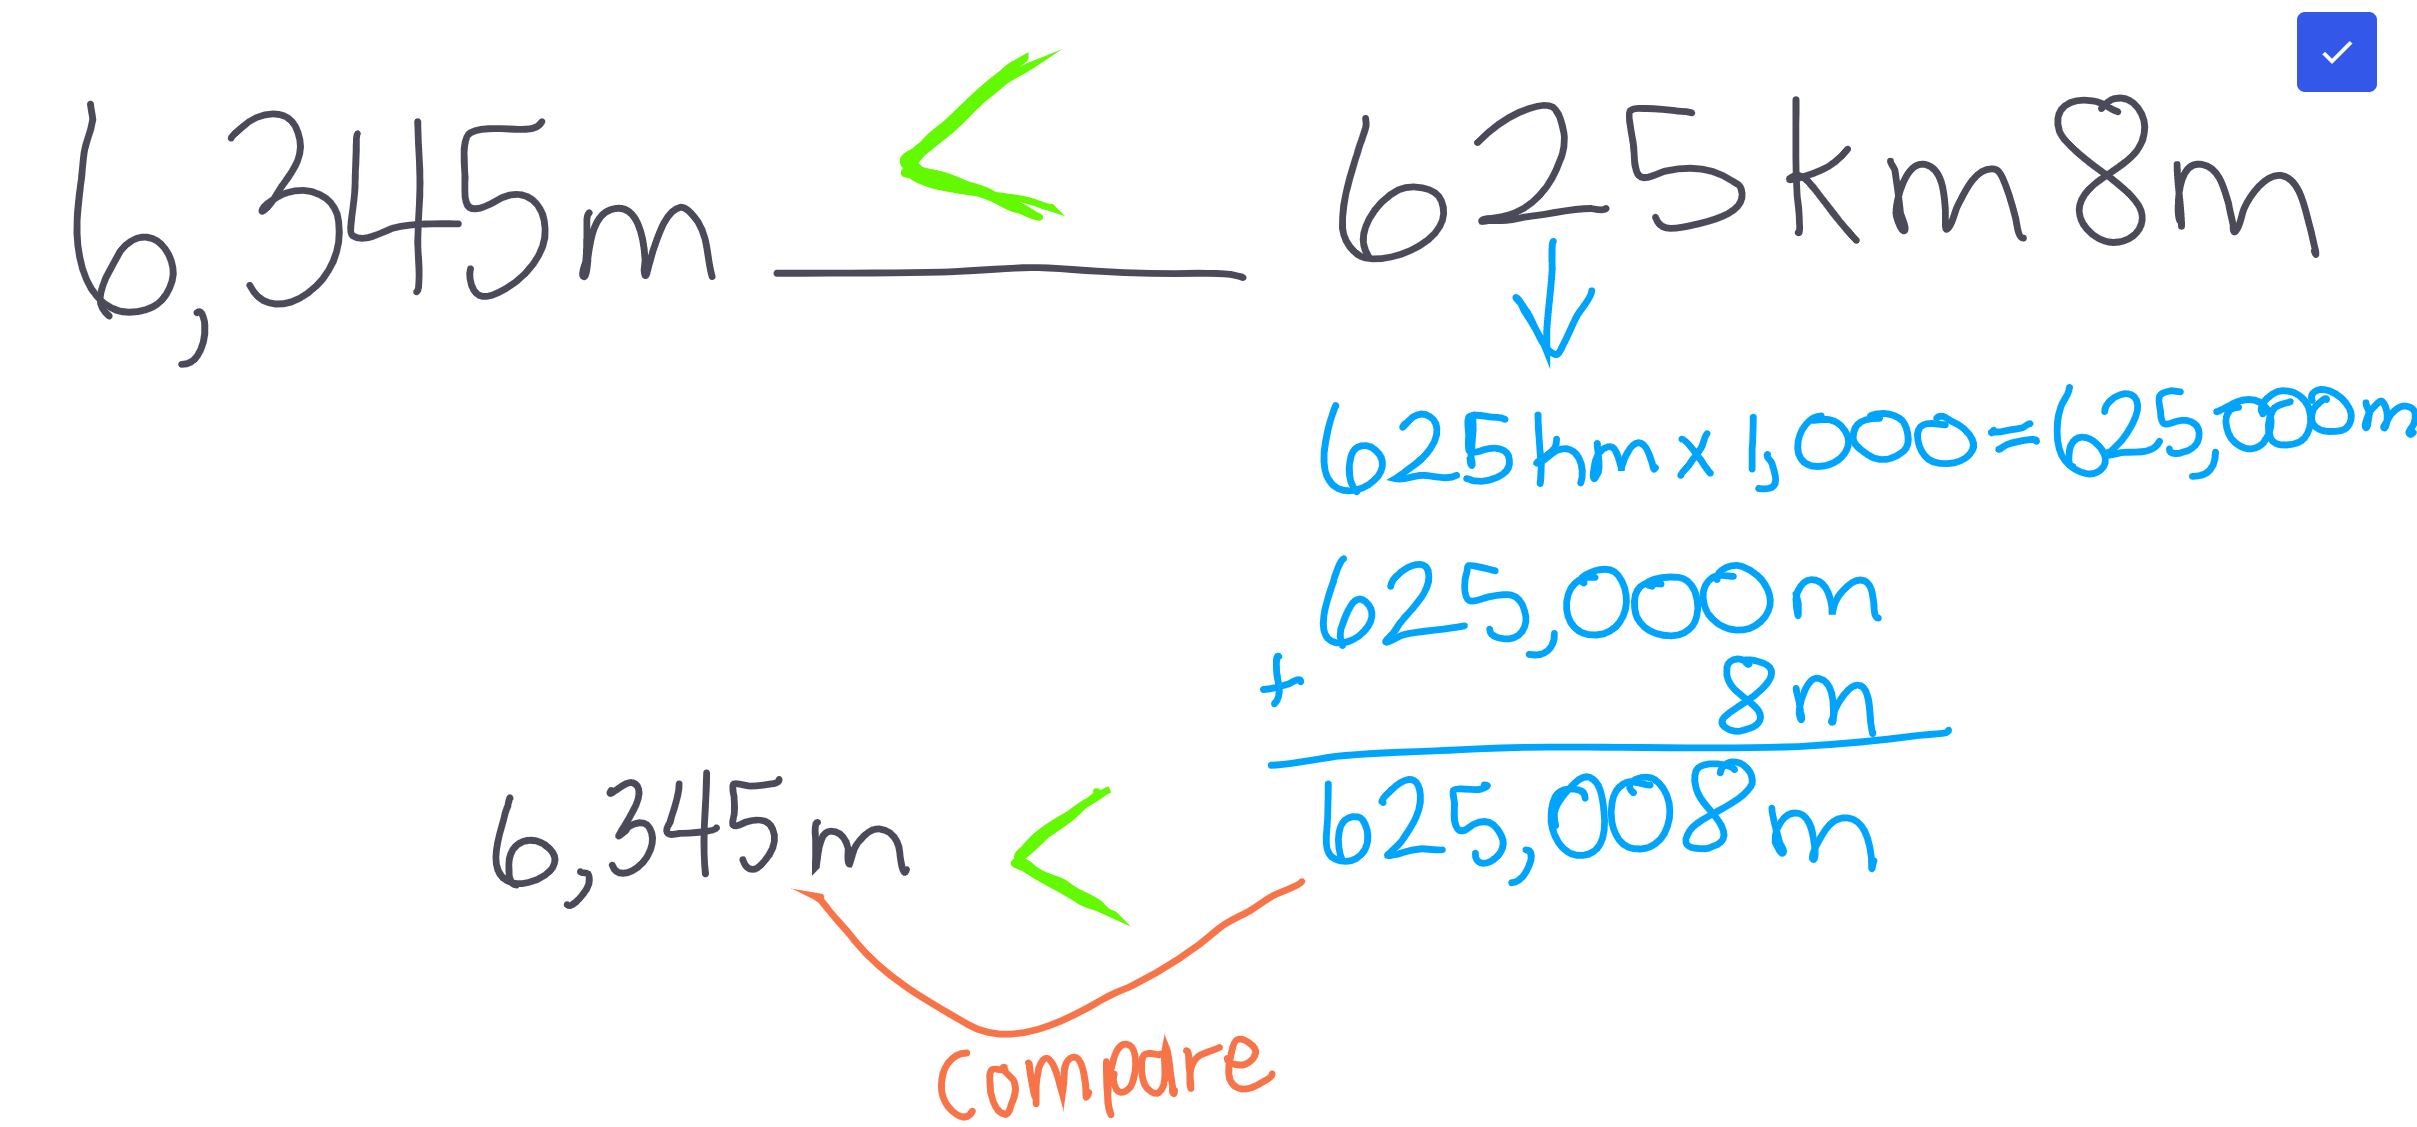 6,345m < 625km8m
625km x 1,000 = 625,000m
625,000m
+ 8m
6,345m < 625,008m
compare